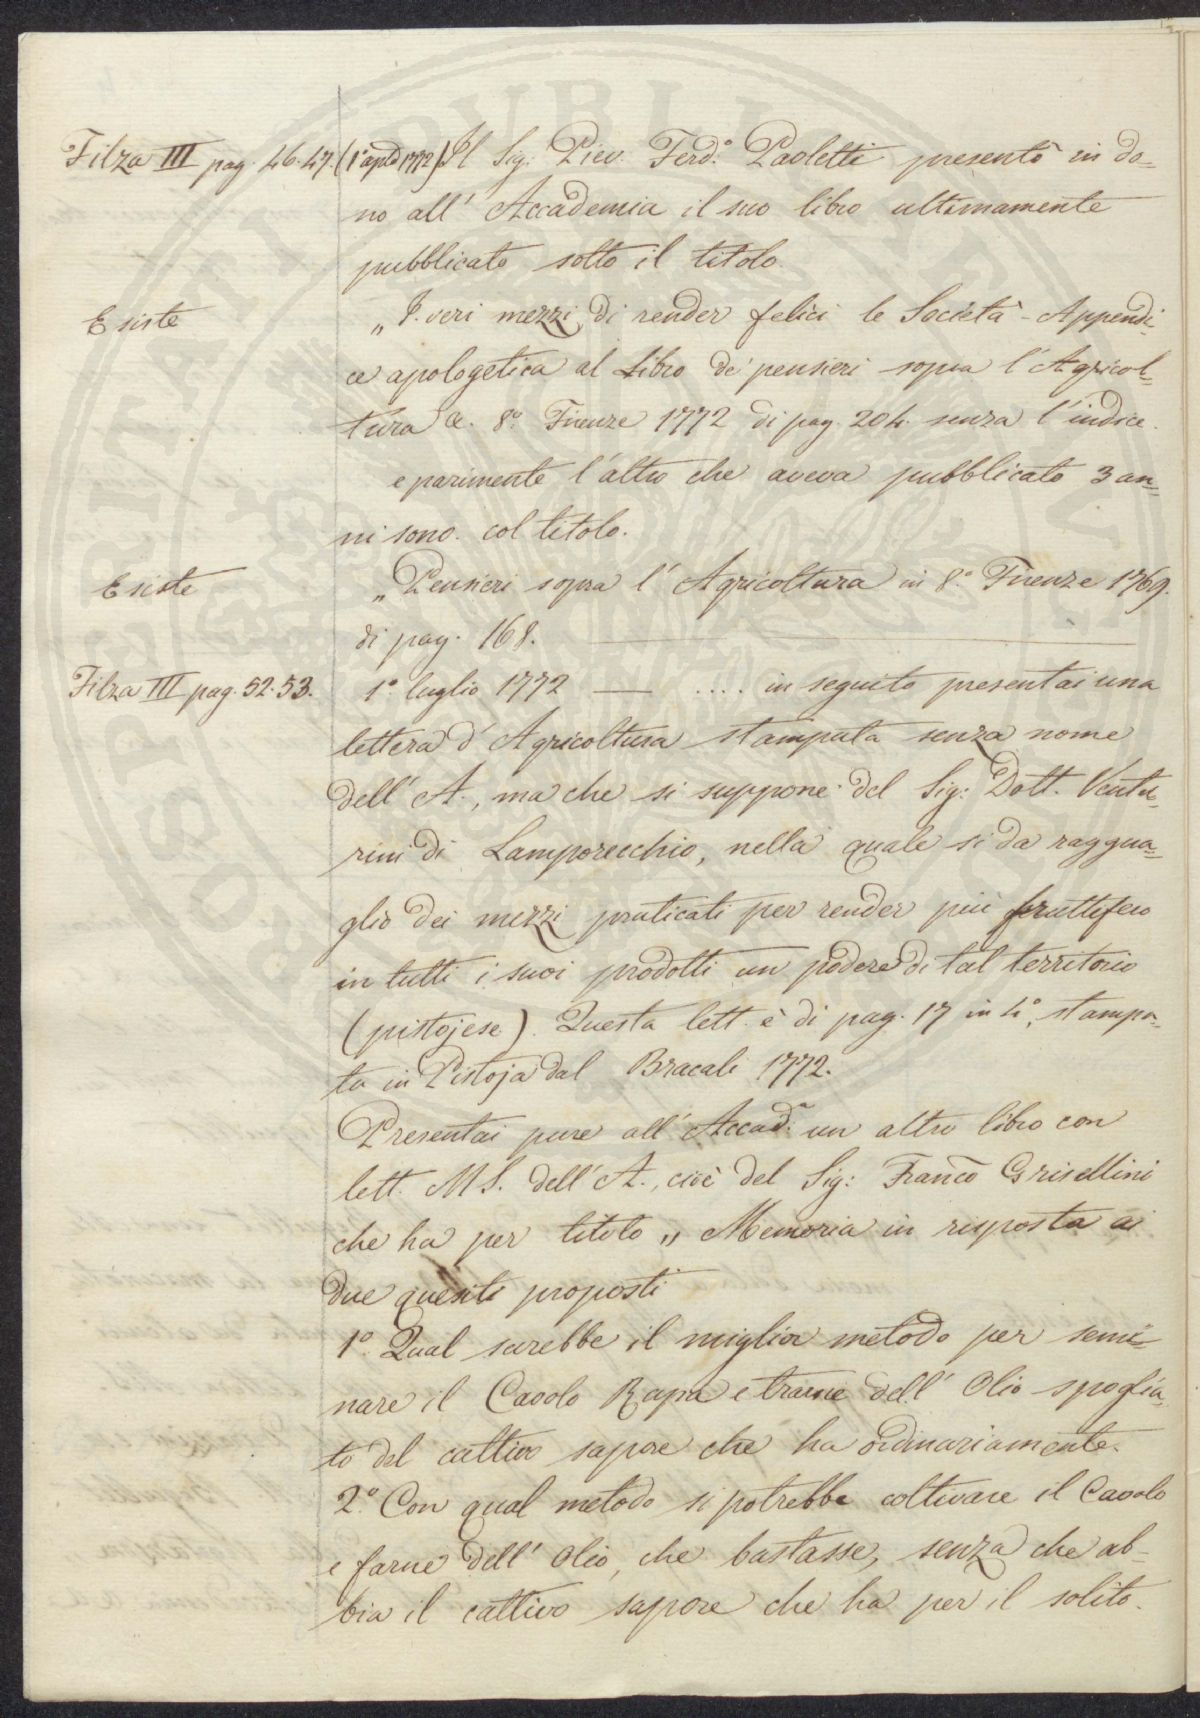 Filza III pag. 46.47. (1° ap.le 1772) Il Sig. Piev. Ferd.° Paoletti presentò in do-
no all' Accademia il suo libro ultimamente
pubblicato sotto il titolo.
Esiste „ I veri mezzi di render felici le Società - Appendi-
ce apologetica al Libro de' pensieri sopra l'Agricol-
tura &. 8.° Firenze 1772 di pag. 204. senza l'indice.
e parimente l'altro che aveva pubblicato 3 an-
ni sono. col titolo.
Esiste „ Pensieri sopra l'Agricoltura in 8.° Firenze 1769.
di pag. 168.
Filza III pag. 52.53. 1° luglio 1772 — .... in seguito presentai una
lettera d'Agricoltura stampata senza nome
dell' A., ma che si suppone del Sig: Dott. Ventu-
rini di Lamporecchio, nella quale si da raggua-
glio dei mezzi praticati per render più fruttifero
in tutti i suoi prodotti un podere di tal territorio
(pistojese). Questa lett. è di pag. 17 in 4°, stampa-
ta in Pistoja dal Bracali 1772.
Presentai pure all' Accad.a un altro libro con
lett. MS. dell' A., cioè del Sig: Franco Grisellini
che ha per titolo „ Memoria in risposta ai
due quesiti proposti
1° Qual sarebbe il miglior metodo per semi-
nare il Cavolo Rapa e trarne dell' Olio spoglia-
to del cattivo sapore che ha ordinariamente.
2.° Con qual metodo si potrebbe coltivare il Cavolo
e farne dell' Olio, che bastasse, senza che ab-
bia il cattivo sapore che ha per il solito.